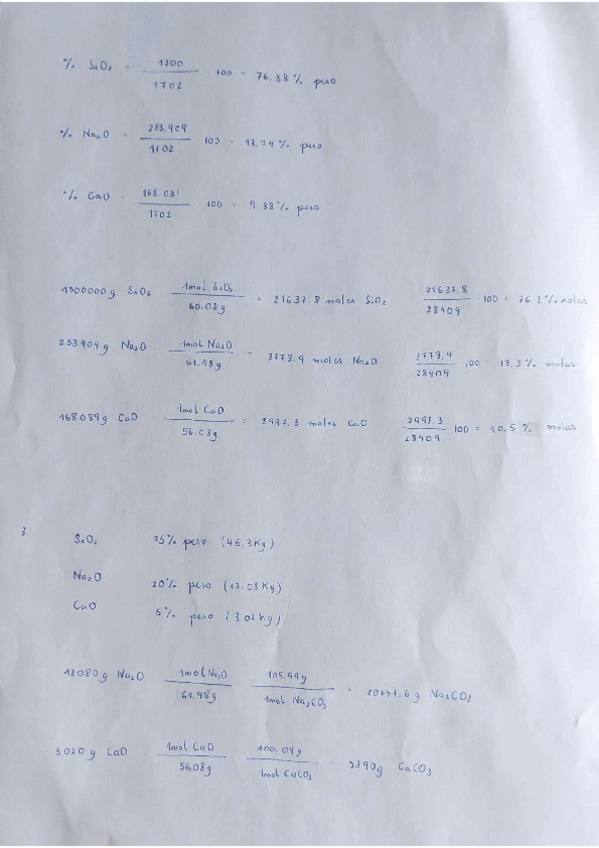 % SiO₂ = 1300 / 1702 · 100 = 76,38 % peso
% Na₂O = 233,909 / 1702 · 100 = 13,74 % peso
% CaO = 168.089 / 1702 · 100 = 9,88 % peso
1300000 g SiO₂ · 1mol SiO₂ / 60.08g = 21637.8 moles SiO₂ 21637.8 / 28409 100 = 76.1 % molar
233909 g Na₂O · 1mol Na₂O / 61.98g = 3773,9 moles Na₂O 3773,9 / 28409 100 = 13,3 % molar
168.089g CaO · 1mol CaO / 56.08g = 2997,3 moles CaO 2997.3 / 28409 100 = 10,5 % molar
3.
SiO₂ 75% peso (45,3Kg)
Na₂O 20% peso (12.08Kg)
CaO 5% peso (3,02Kg)
12080g Na₂O 1mol Na₂O / 61.98g · 105.99g / 1mol Na₂CO₃ = 20657,6 g Na₂CO₃
3020 g CaO · 1mol CaO / 56,08g · 100.09g / 1mol CaCO₃ = 5390g CaCO₃